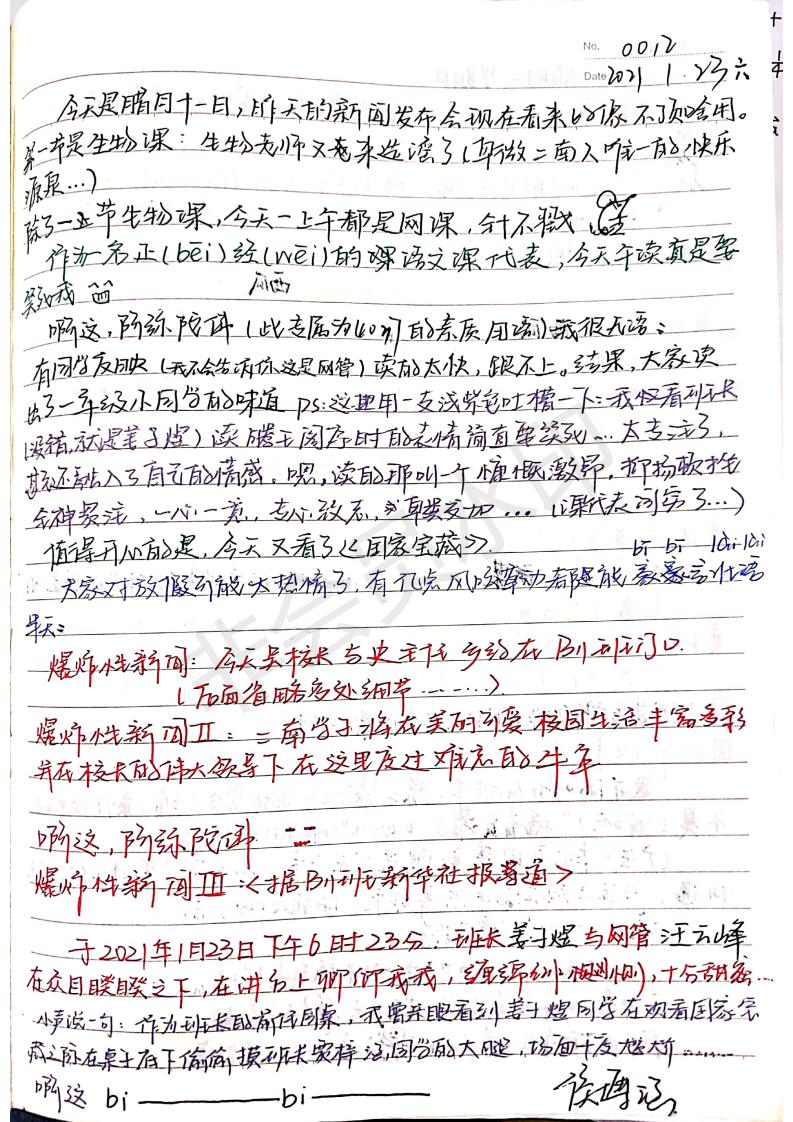 No. 0012
Date 2021 1.23 六
今天是腊月十一日,昨天的新闻发布会现在看来好像不顶啥用。
第一节是生物课:生物老师又来造谣了(卑微二南人唯一的快乐
源泉…)
除了一节生物课,今天一上午都是网课,针不戳
作为一名正(bēi)经(wēi)的语文课代表,今天午读真是要
笑死我
啊这,阿弥陀佛(此专属为的素质用语)我很无语:
有同学反映(我不会告诉你这是网管)读的太快,跟不上。结果,大家读
出了一年级小同学的味道 ps:这里用一支浅紫色吐槽一下:我怪看班长
(没错,就是姜子煜)读滕王阁序时的表情简直要笑死…太专注了,
甚至还融入了自己的情感,嗯,读的那叫一个慷慨激昂,抑扬顿挫
全神贯注,一心一意,专心致志,…(课代表词穷了…)
值得开心的是,今天又看了《国家宝藏》.
bi bi lai lai
大家对放假可能太热情了,有一点风吹草动都能豪言壮语
半天:
爆炸性新闻:今天吴校长与史主任乡约在B11班门口
(后面省略多处细节……)
爆炸性新闻II:二南学子将在美丽可爱校园生活丰富多彩
并在校长的伟大领导下在这里度过难忘的牛年
啊这,阿弥陀佛
爆炸性新闻III:<据B11班新华社报道>
于2021年1月23日下午6时23分.班长姜子煜与网管汪云峰
在众目睽睽之下,在讲台上卿卿我我,缠绵,十分甜蜜…
小声说一句:作为班长的前任同桌,我曾亲眼看到姜子煜同学在观看国家宝
藏之际在桌子底下偷偷摸班长宋梓涵同学的大腿,场面十度尴尬……
啊这 bi———bi———